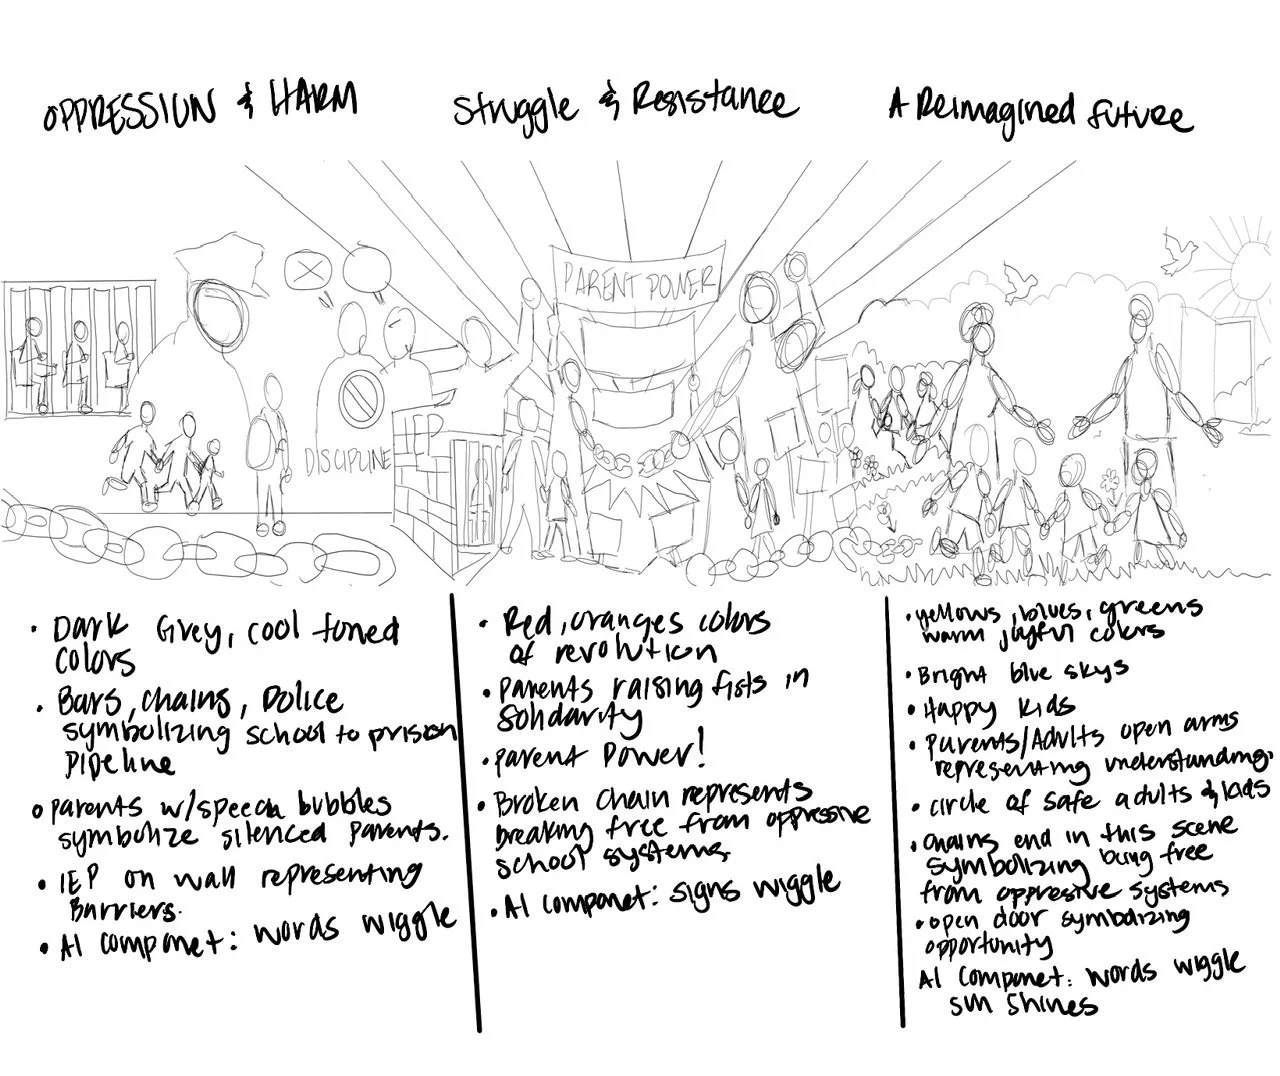 OPPRESSION & HARM
Struggle & Resistance
A Reimagined future
PARENT POWER
DISCIPLINE
IEP
• Dark Grey, cool toned
colors
• Bars, chains, Police
symbolizing school to prison
pipeline
• parents w/speech bubbles
symbolize silenced parents.
• IEP on wall representing
Barriers.
• AI componet: words wiggle
• Red, oranges colors
of revolution
• Parents raising fists in
solidarity
• parent Power!
• Broken chain represents
breaking free from oppressive
school systems
• AI componet: signs wiggle
• yellows, blues, greens
warm joyful colors
• Bright blue skys
• Happy kids
• Parents/Adults open arms
representing understanding.
• circle of safe adults & kids
• chains end in this scene
symbolizing being free
from oppressive systems
• open door symbolizing
opportunity
AI componet: words wiggle
sun shines